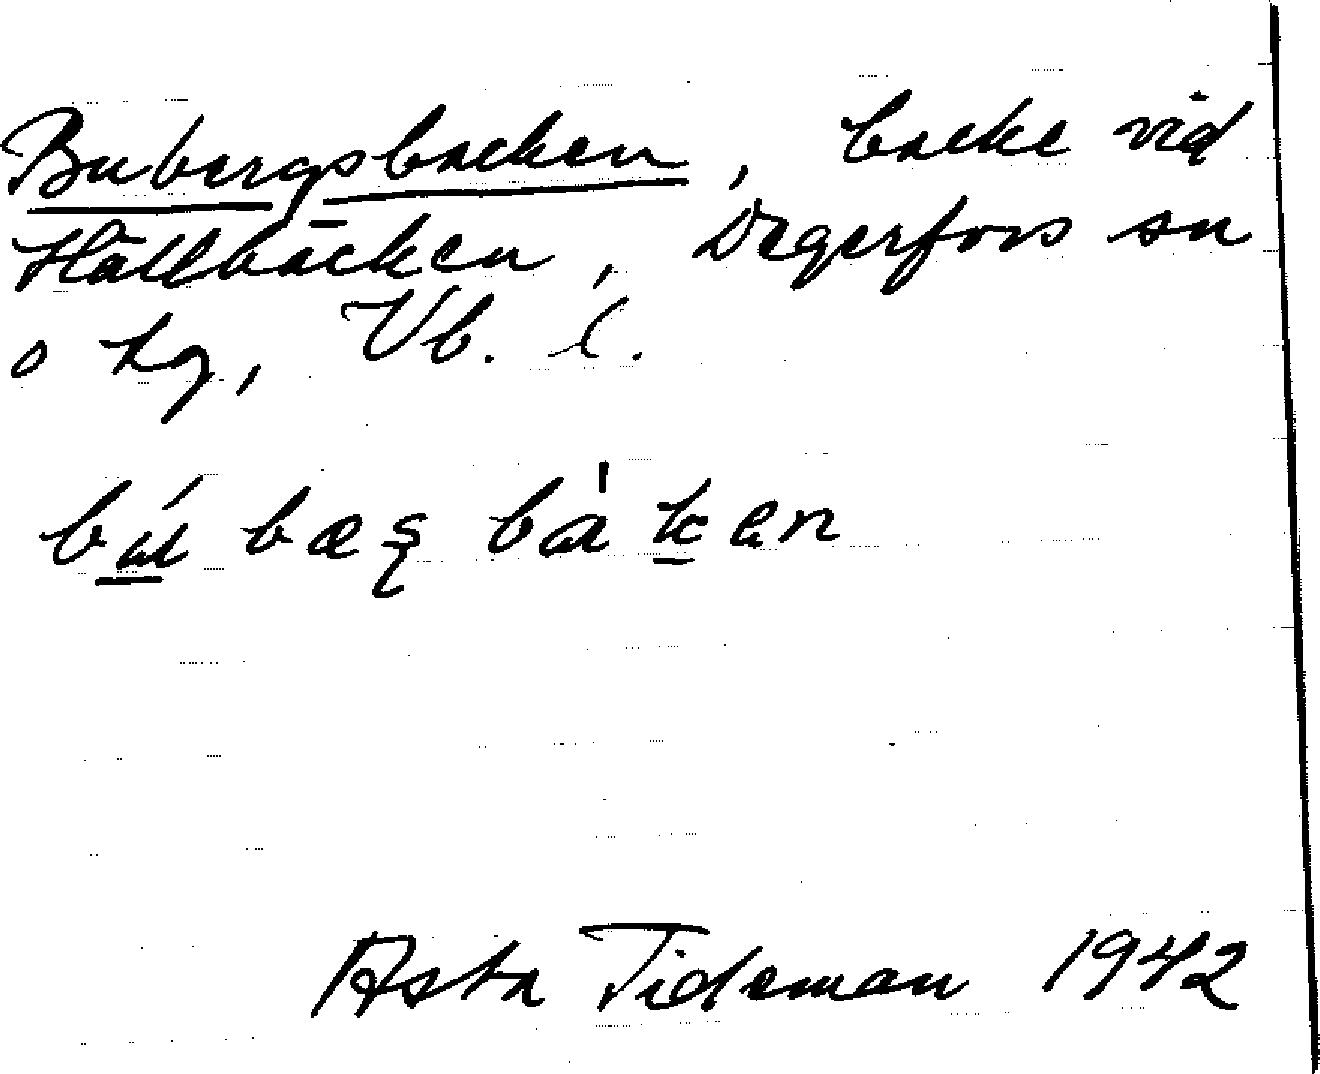 Bubergsbacken, backe vid
Hällbäcken, Degerfors sn
o hg, Vb. l.
Asta Tideman 1942